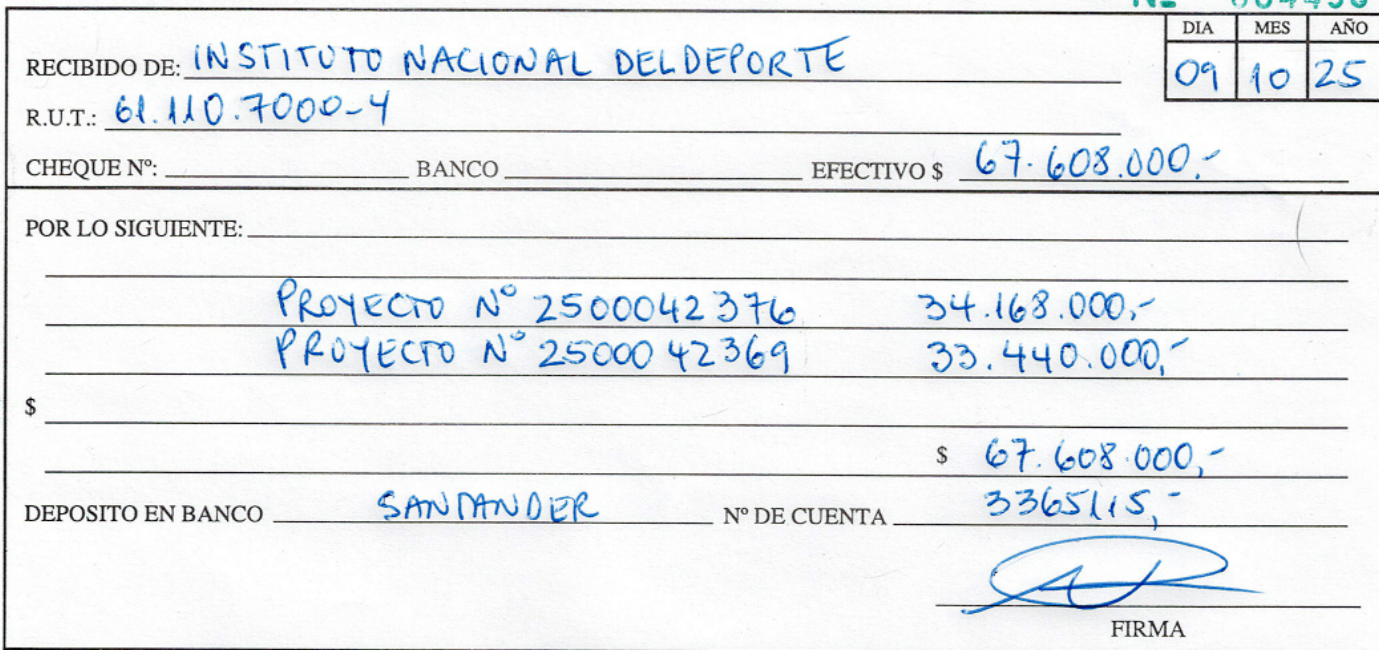 DIA MES AÑO
RECIBIDO DE: INSTITUTO NACIONAL DEL DEPORTE 09 10 25
R.U.T.: 61.110.7000-4
CHEQUE Nº: BANCO EFECTIVO $ 67.608.000.-
POR LO SIGUIENTE:
PROYECTO Nº 2500042376 34.168.000,-
PROYECTO Nº 2500042369 33.440.000,-
$
$ 67.608.000,-
DEPOSITO EN BANCO SANTANDER Nº DE CUENTA 3365115,-
FIRMA